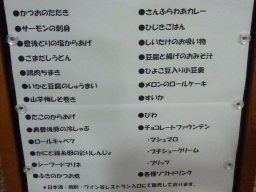 ●かつおのたたき
●サーモンの刺身
●豊後どりの塩からあげ
●ごまだしうどん
●鶏肉うま き
●いかと豆腐のしゅうまい
●山芋梅しそ巻き
●たこのからあげ
●真豊後豚の冷しゃぶ
●ロールキャベツ
●かにと錦糸椀の彩りしんじょ
●シーフードマリネ
●ふきのつかめ煮
●さんふらわあカレー
●ひじきごはん
●しいたけのお吸い物
●豆腐と揚げのおみそ汁
●ひよこ豆入り小豆羹
●メロンのロールケーキ
●すいか
●びわ
●チョコレートファウンテン
・マシュマロ
・プチシュークリーム
・プリッツ
●各種ソフトドリンク
＊日本酒・焼酎・ワイン等レストラン入口にて販売しております。